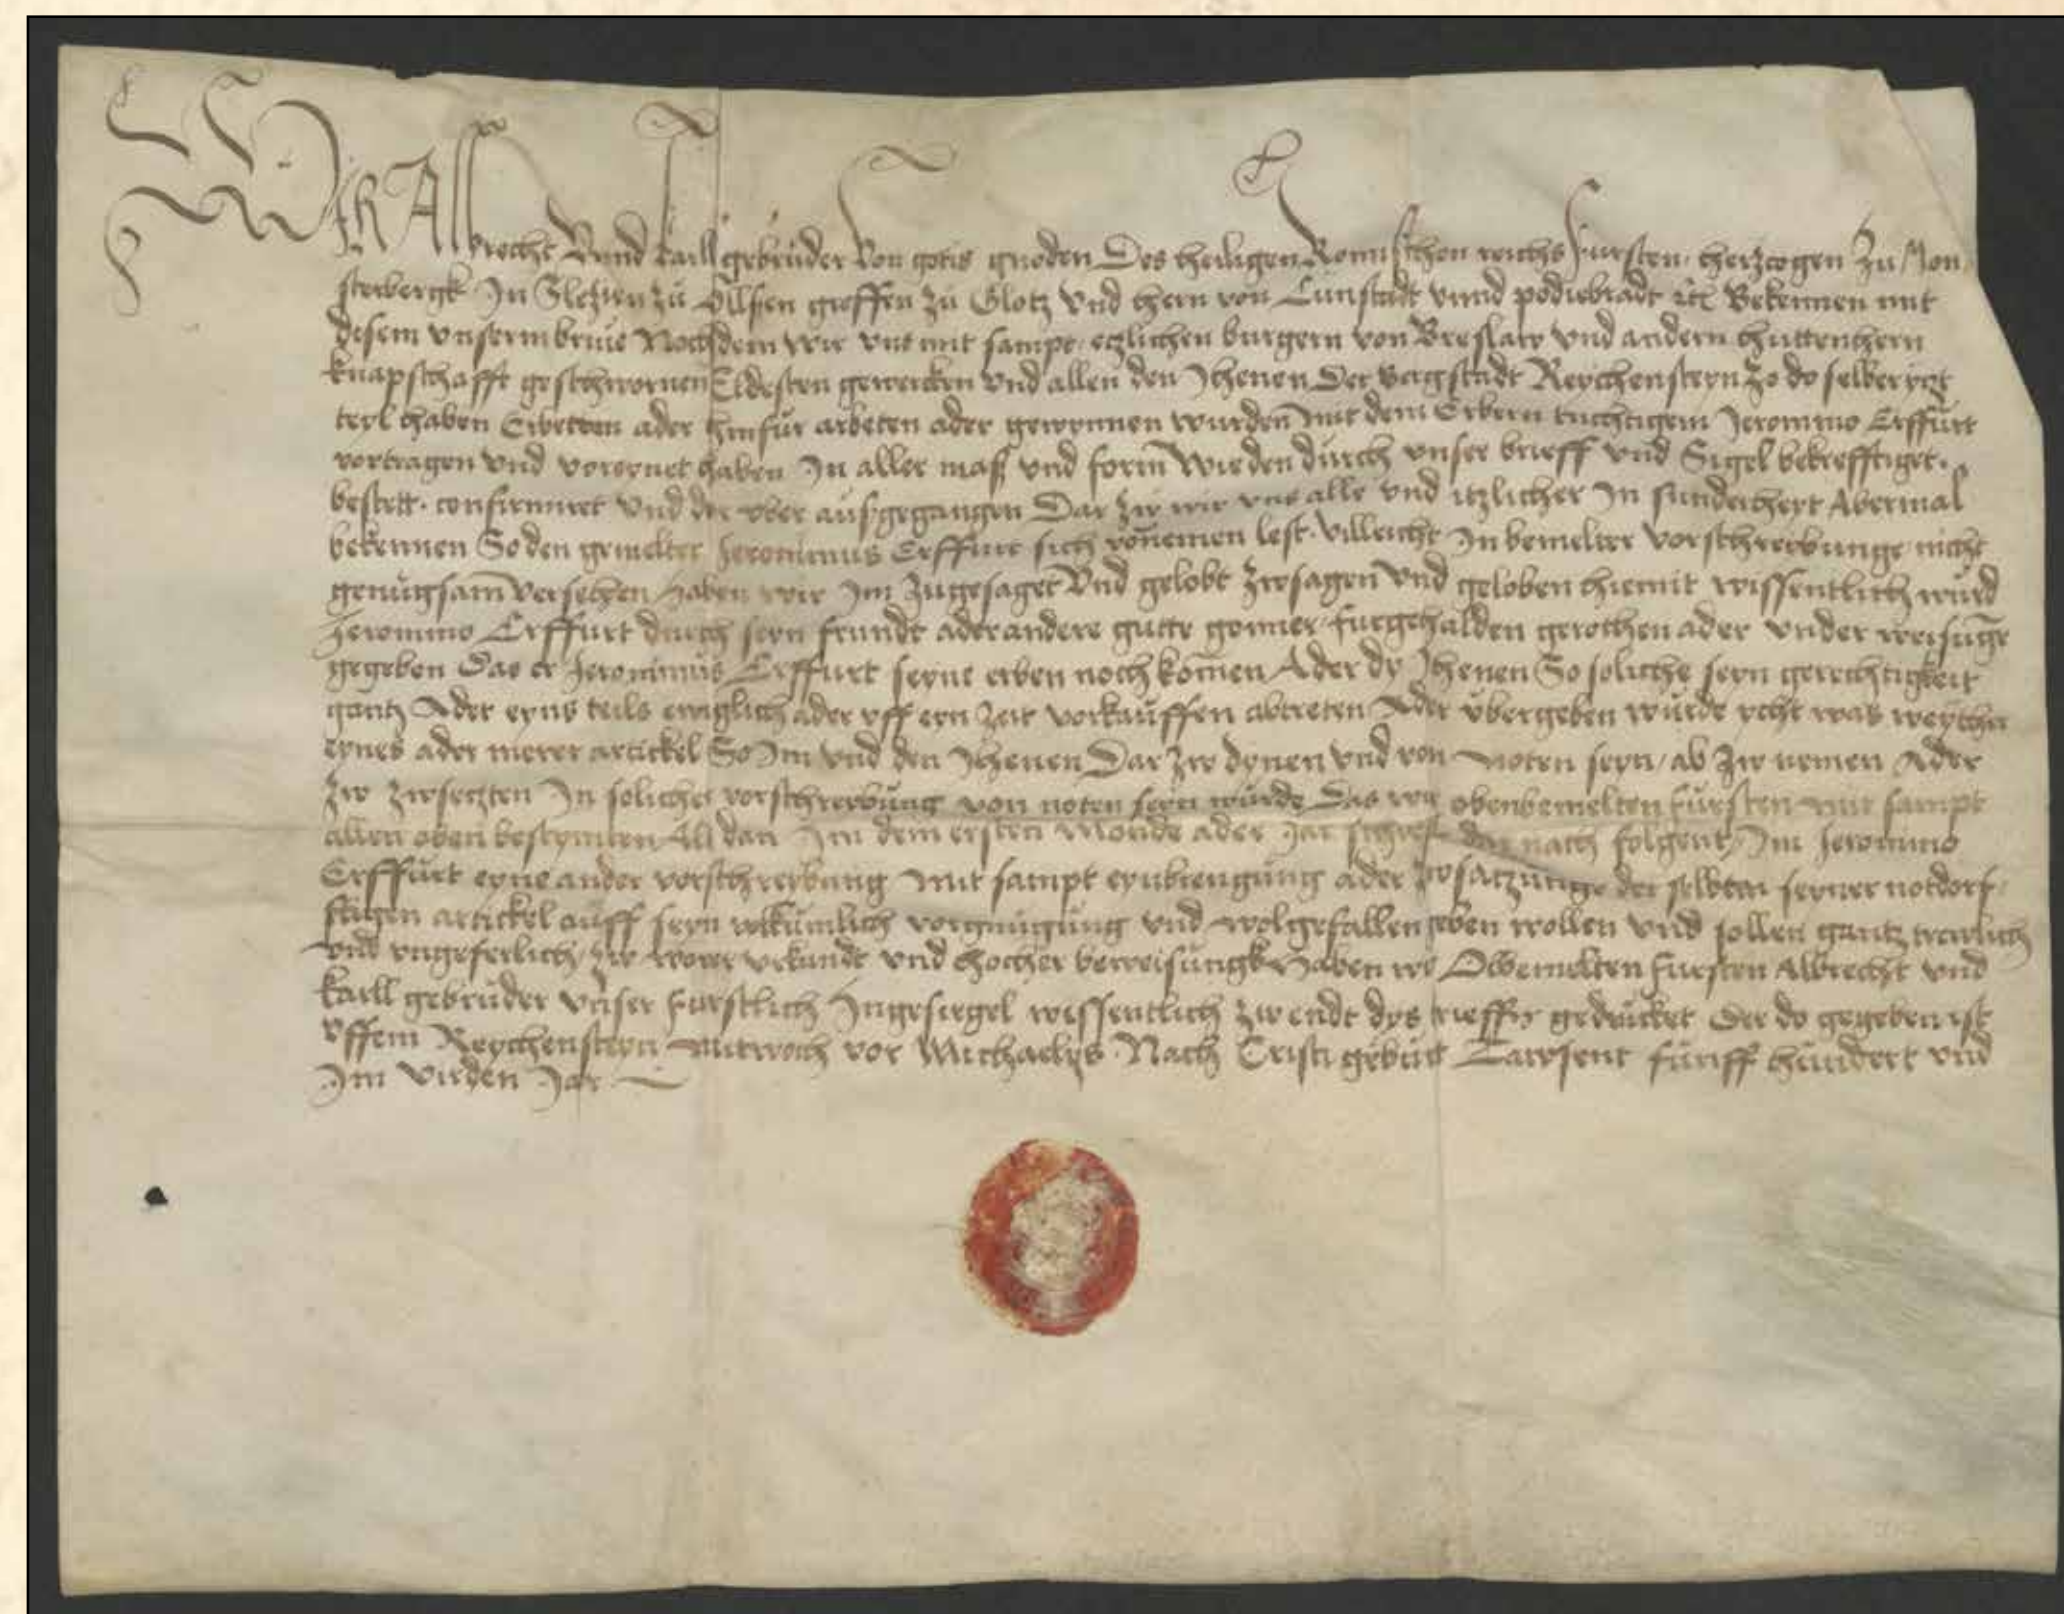 Wir Albrecht Vnnd Karll gebruder Von gotis gnoden Des heiligen Romischen reichs Fursten herzcogen Zu Mon
sterbergk In Slezien zu Ollsen groffen zu Glotz vnd hern von Cunstadt vnnd podiebradt etc Bekennen mit
disem vnserm briue Nochdem wir vns mit sampt etzlichen burgern von Breslaw vnd andern huttenhern
knapschafft geschwornen Eldesten gewercken vnd allen den Jhenen Der Bergstadt Reychensteyn Zo do selber
teyl haben Erbetten ader hinfur arbeten ader gewynnen wurden mit dem Erbern tuchtigem Jeronimo Erffurt
vortragen vnd voreynet haben In aller mass vnd form Wie den durch vnser brieff vnd Sigel bekrefftiget
bestett confirmiret vnd der vber aussgegangen Dar zw wir vns alle vnd itzlicher In sunderheyt Abermal
bekennen So den gemelter Jeronimus Erffurt sich vornemen lest villeicht In bemelter vorschreibunge nicht
genugsam Versehen haben wir Im Zugesaget Vnd gelobt Zwsagen Vnd geloben hiemit wissentlich wurd
Jeronimo Erffurt durch seyn frundt ader andere gutte gonner furgehalden gerothen ader vnder weisunge
gegeben Das er Jeronimus Erffurt seyne erben nochkomen Ader dy Jhenen So soliche seyn gerechtigkeit
gantz Ader eyns teils ewiglich ader vff eyn Zeit vorkauffen abtreten Ader vbergeben wurde ycht was
eynes ader merer artickel So Im vnd den Jhenen Dar Zw dynen vnd von Noten seyn ab Zw nemen Ader
Zw Zwsetzten In solicher vorschreybung von noten seyn wurde Das wir obenbemelten Fursten mit sampt
allen oben bestymten All dan Im dem ersten Monde ader Jar nach folgent Im Jeronimo
Erffurt eyne ander vorschreybung mit sampt eynbrengung ader Zwsatzunge der selbten seyner notdorf
ftigen artickel auff seyn vorgnugung vnd wolgefallen geben wollen vnd sollen gantz trewlich
vnd vngeferlich Zw worer vrkundt vnd hocher beweisungk Haben wir Obbemelten Fursten Albrecht vnd
Karll gebruder vnser Furstlich Ingesiegel wissentlich Zw endt dys brieffs gedrucket Der do gegeben ist
Vffem Reychensteyn Mitwoch vor Michaelys Nach Cristi geburt Tawsent funff hundert vnd
Im virden Jar